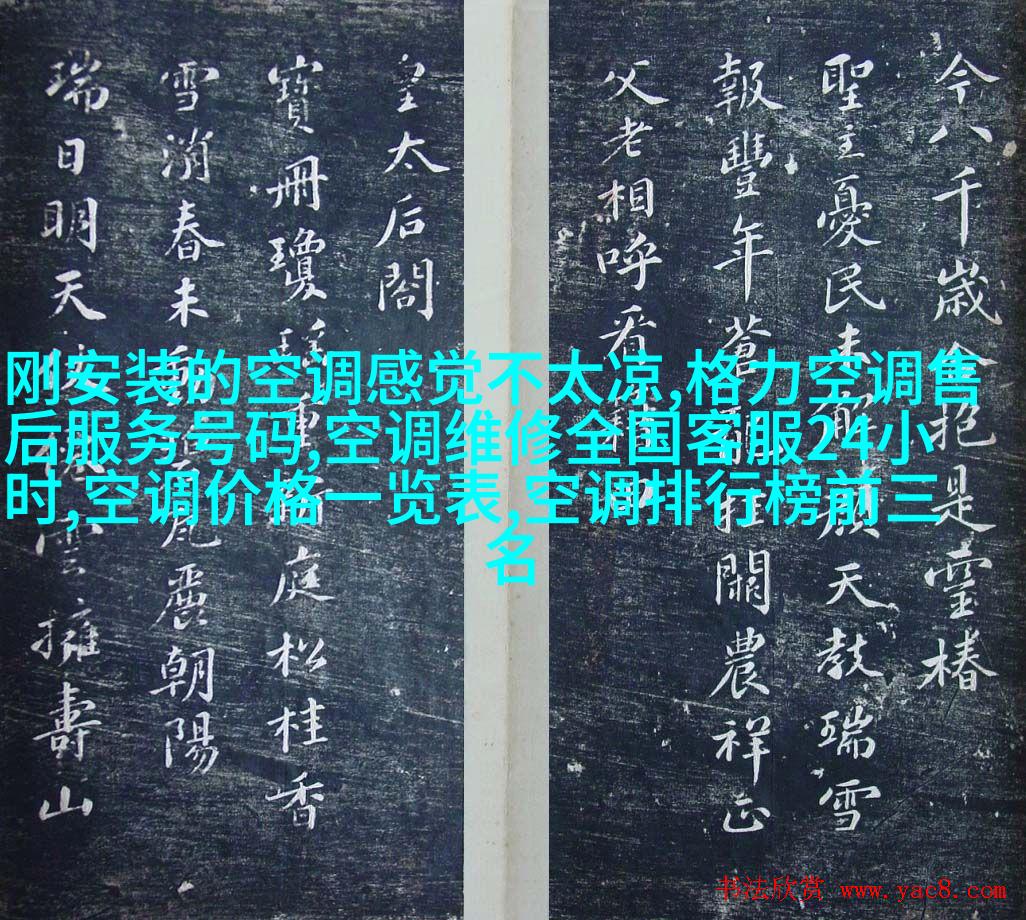 刚安装的空调感觉不太凉,格力空调售
后服务号码,空调维修全国客服24小
时,空调价格一览表,空调排行榜前三
名
今八千歲合抱是靈椿
聖主憂民未解顏天教瑞雪
報豐年蒼龍挂闕農祥正
父老相呼看
皇太后閤
寶冊瓊瑤重庭松桂香
雪消春未瓦麗朝陽
瑞日明天雲擁壽山
书法欣赏 www.yac8.com